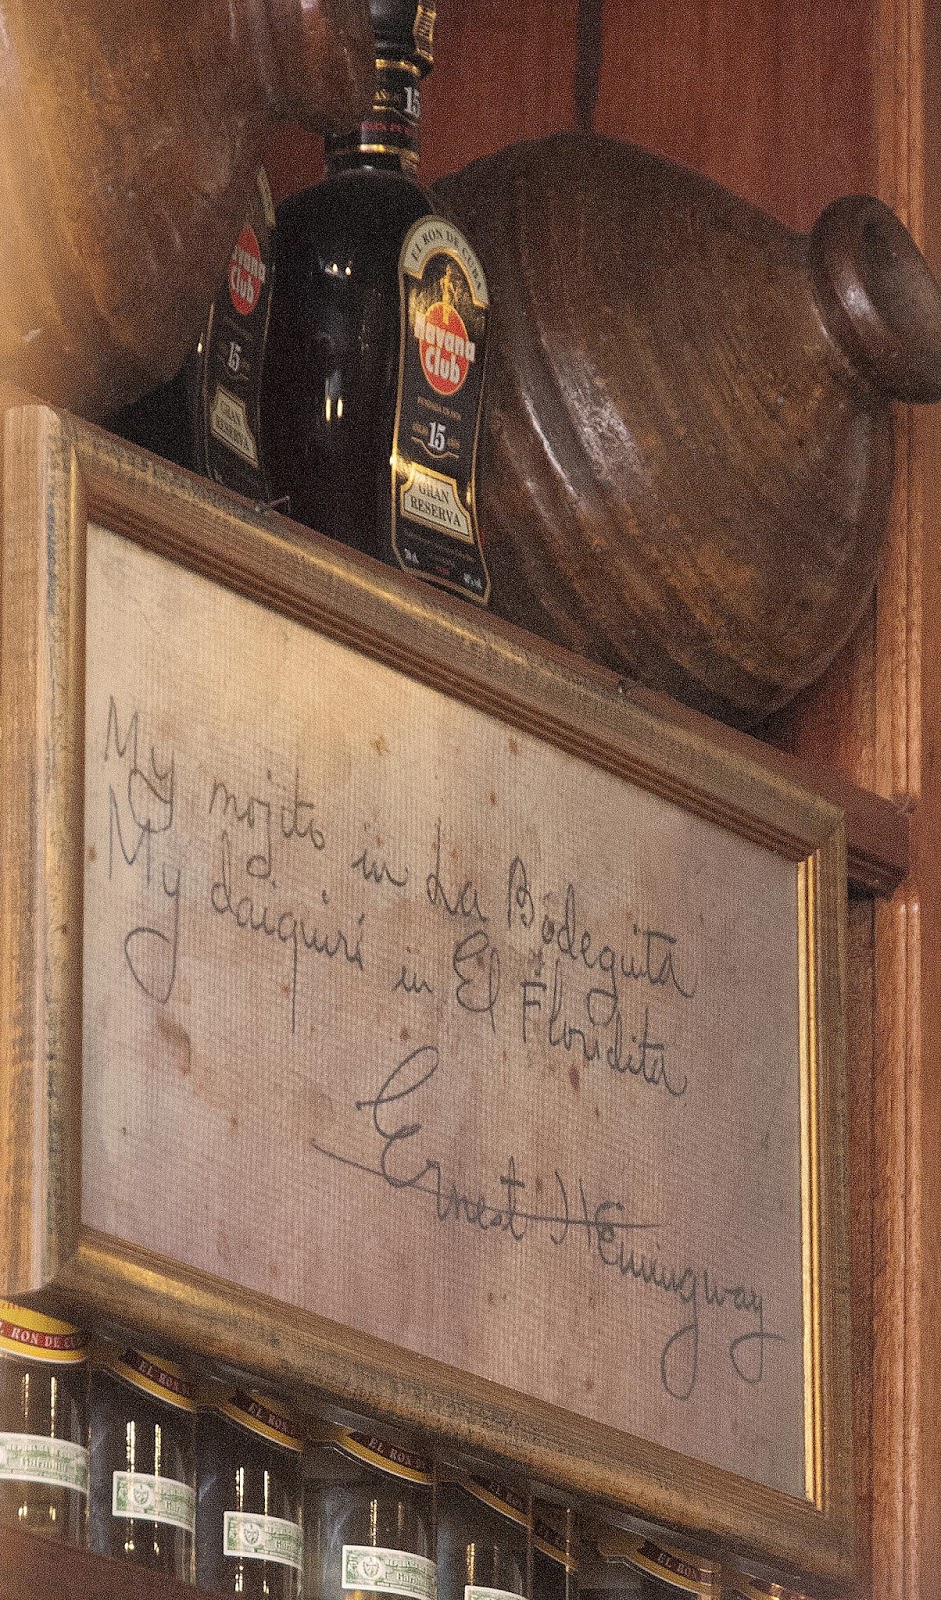 15
EL RON DE CUBA
Havana
Club
15
GRAN
RESERVA
Havana
Club
15
GRAN
RESERVA
My mojito in La Bodeguita
My daiquirí in El Floridita
Ernest Hemingway
EL RON DE
EL RON
EL RON
EL RON